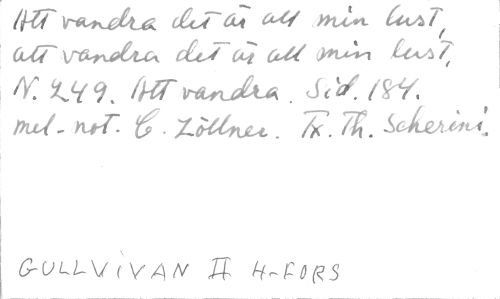 Att vandra det är all min lust,
att vandra det är all min lust,
N. 249. Att vandra. Sid. 184.
mel-not. C. Zöllner. Tx. Th. Scherini.
GULLVIVAN II H-FORS